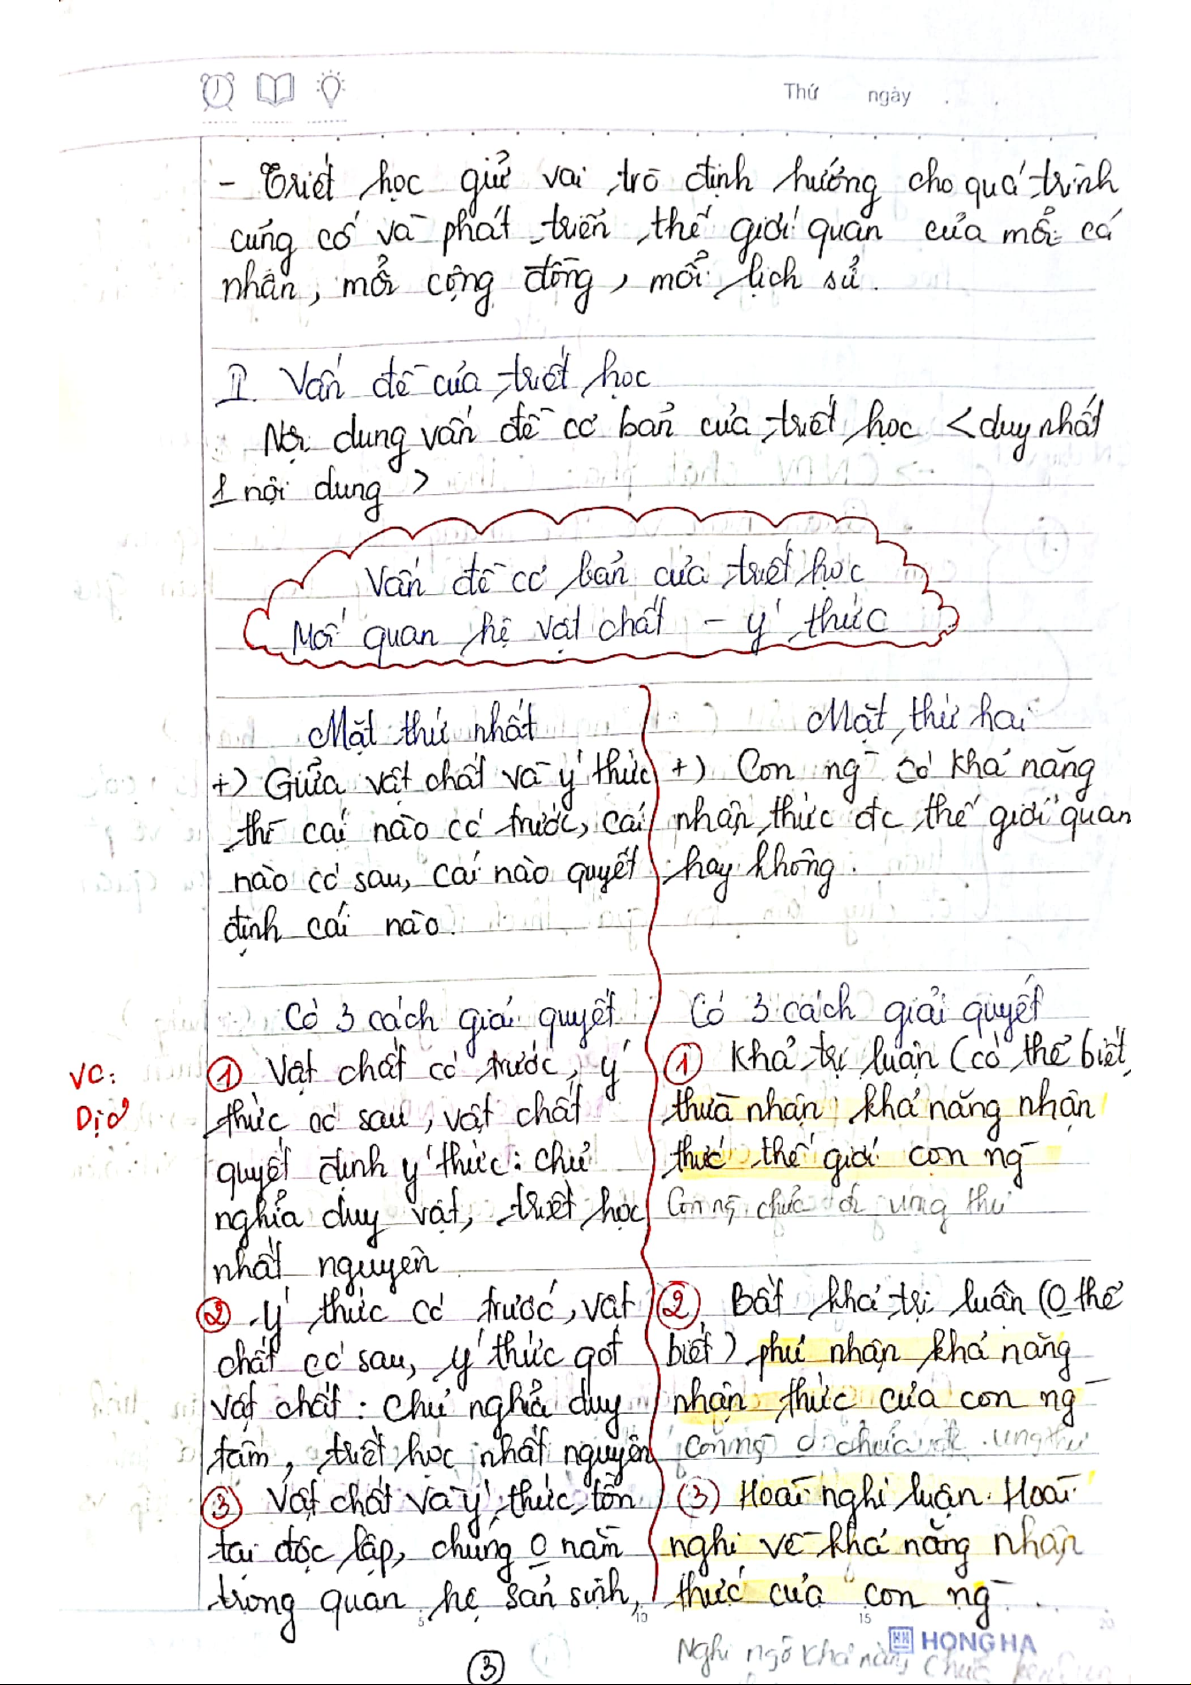 Thứ ngày
- Triết học giữ vai trò định hướng cho quá trình
củng cố và phát triển thế giới quan của mỗi cá
nhân, mỗi cộng đồng, mỗi lịch sử.
II. Vấn đề của triết học
Nội dung vấn đề cơ bản của triết học <duy nhất
1 nội dung >
Vấn đề cơ bản của triết học
Mối quan hệ vật chất - ý thức
Mặt thứ nhất
+) Giữa vật chất và ý thức
thì cái nào có trước, cái
nào có sau, cái nào quyết
định cái nào.
Có 3 cách giải quyết
VC:
① Vật chất có trước, ý
thức có sau, vật chất
quyết định ý thức: chủ
nghĩa duy vật, triết học
nhất nguyên
② Ý thức có trước, vật
chất có sau, ý thức qđ
vật chất: chủ nghĩa duy
tâm, triết học nhất nguyên
③ Vật chất và ý thức tồn
tại độc lập, chúng 0 nằm
trong quan hệ sản sinh,
Mặt thứ hai
+) Con ng có khả năng
nhận thức đc thế giới quan
hay không.
Có 3 cách giải quyết
① Khả tri luận (có thể biết,
thừa nhận khả năng nhận
thức thế giới con ng
Con ng chữa ung thư
② Bất khả tri luận (0 thể
biết) phủ nhận khả năng
nhận thức của con ng
con ng 0 chữa ung thư
(3) Hoài nghi luận. Hoài
nghi về khả năng nhận
thức của con ng
5 10 15 20
HONG HA
Nghi ngờ khả năng chữa
③